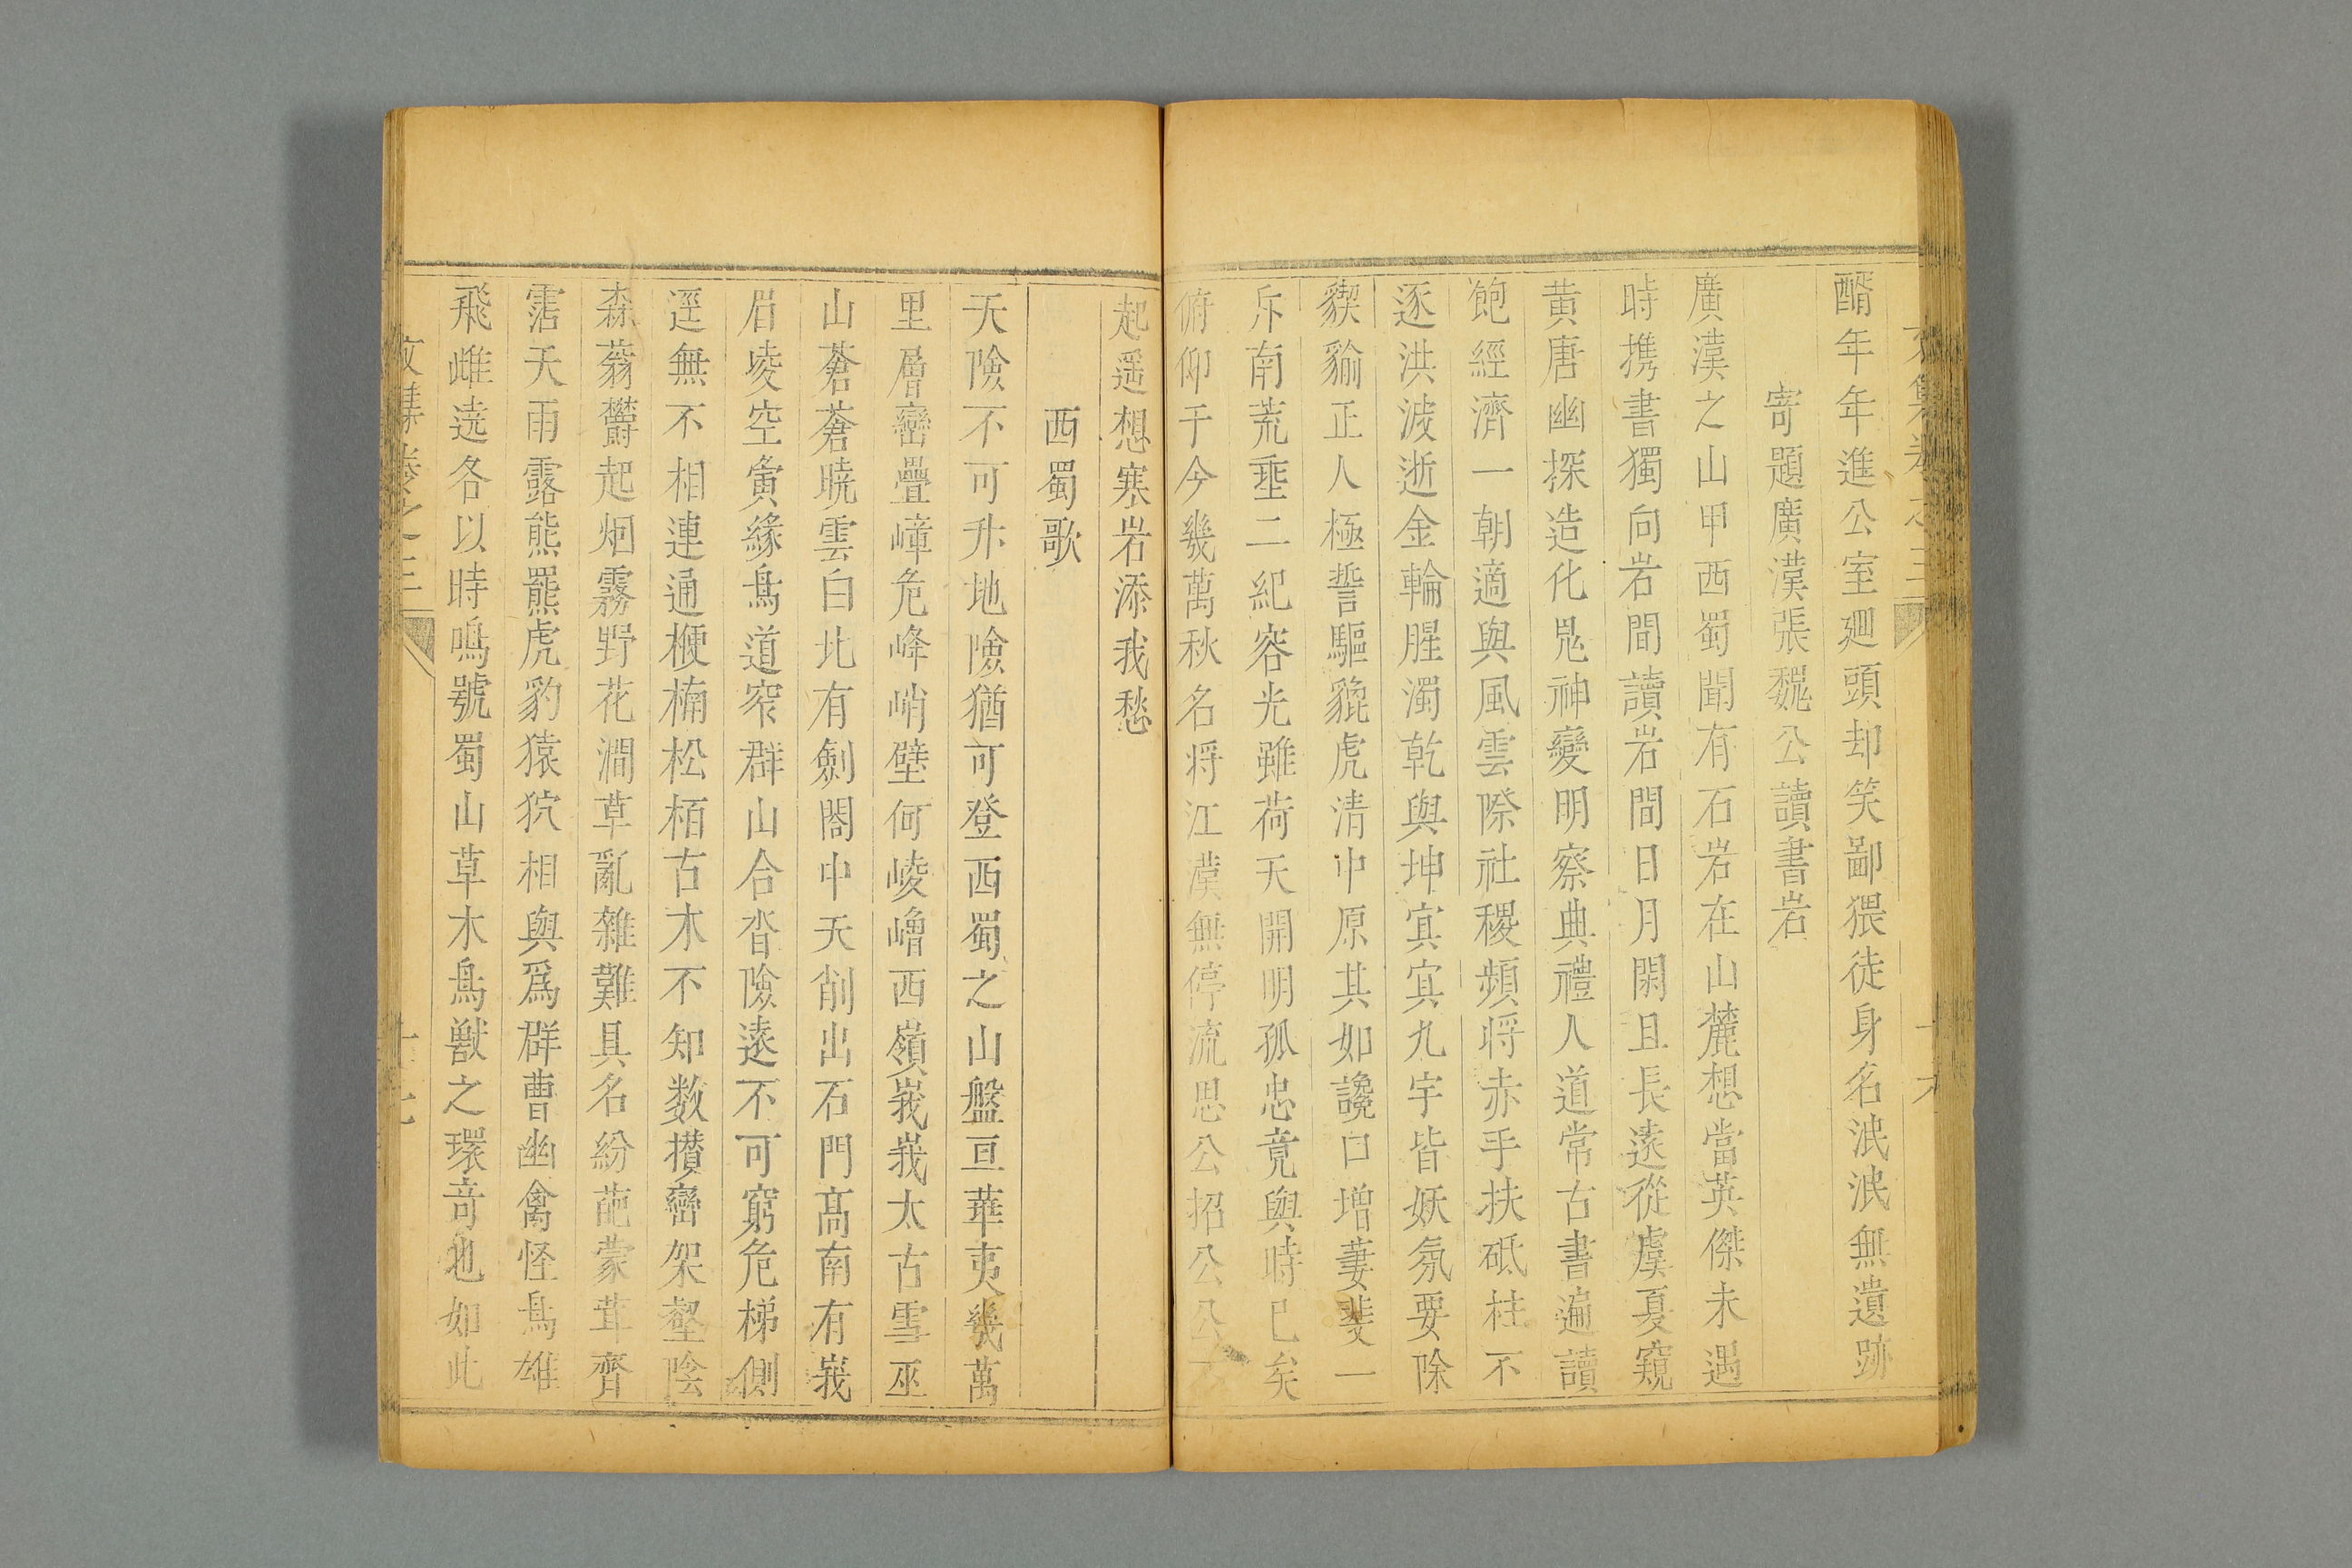 文集卷之三
十六
醑年年進公室廻頭却笑鄙猥徒身名泯泯無遺跡
寄題廣漢張魏公讀書岩
廣漢之山甲西蜀聞有石岩在山麓想當英傑未遇
時携書獨向岩間讀岩間日月閑且長遠從虞夏窺
黄唐幽探造化鬼神變明察典禮人道常古書遍讀
飽經濟一朝適與風雲際社稷頻将赤手扶砥柱不
逐洪波逝金輪腥濁乾與坤冥冥九宇皆妖氛要除
猰貐正人極誓驅貔虎清中原其如讒口增萋斐一
斥南荒垂二紀容光雖荷天開明孤忠竟與時已矣
俯仰于今幾萬秋名将江漢無停流思公招公公不
起遥想寒岩添我愁
西蜀歌
天險不可升地險猶可登西蜀之山盤亘華夷幾萬
里層巒疊嶂危峰峭壁何崚嶒西嶺峩峩太古雪巫
山蒼蒼曉雲白北有劍閣中天削出石門髙南有峩
眉崚空夤緣鳥道窄群山合沓險遠不可窮危梯側
逕無不相連通楩楠松栢古木不知数攅巒架壑陰
森蓊欝起烟霧野花澗草亂雜難具名紛葩蒙茸齊
霑天雨露熊羆虎豹猿狖相與爲群曹幽禽怪鳥雄
飛雌遶各以時鳴號蜀山草木鳥獣之環竒也如此
文集卷之三
十七